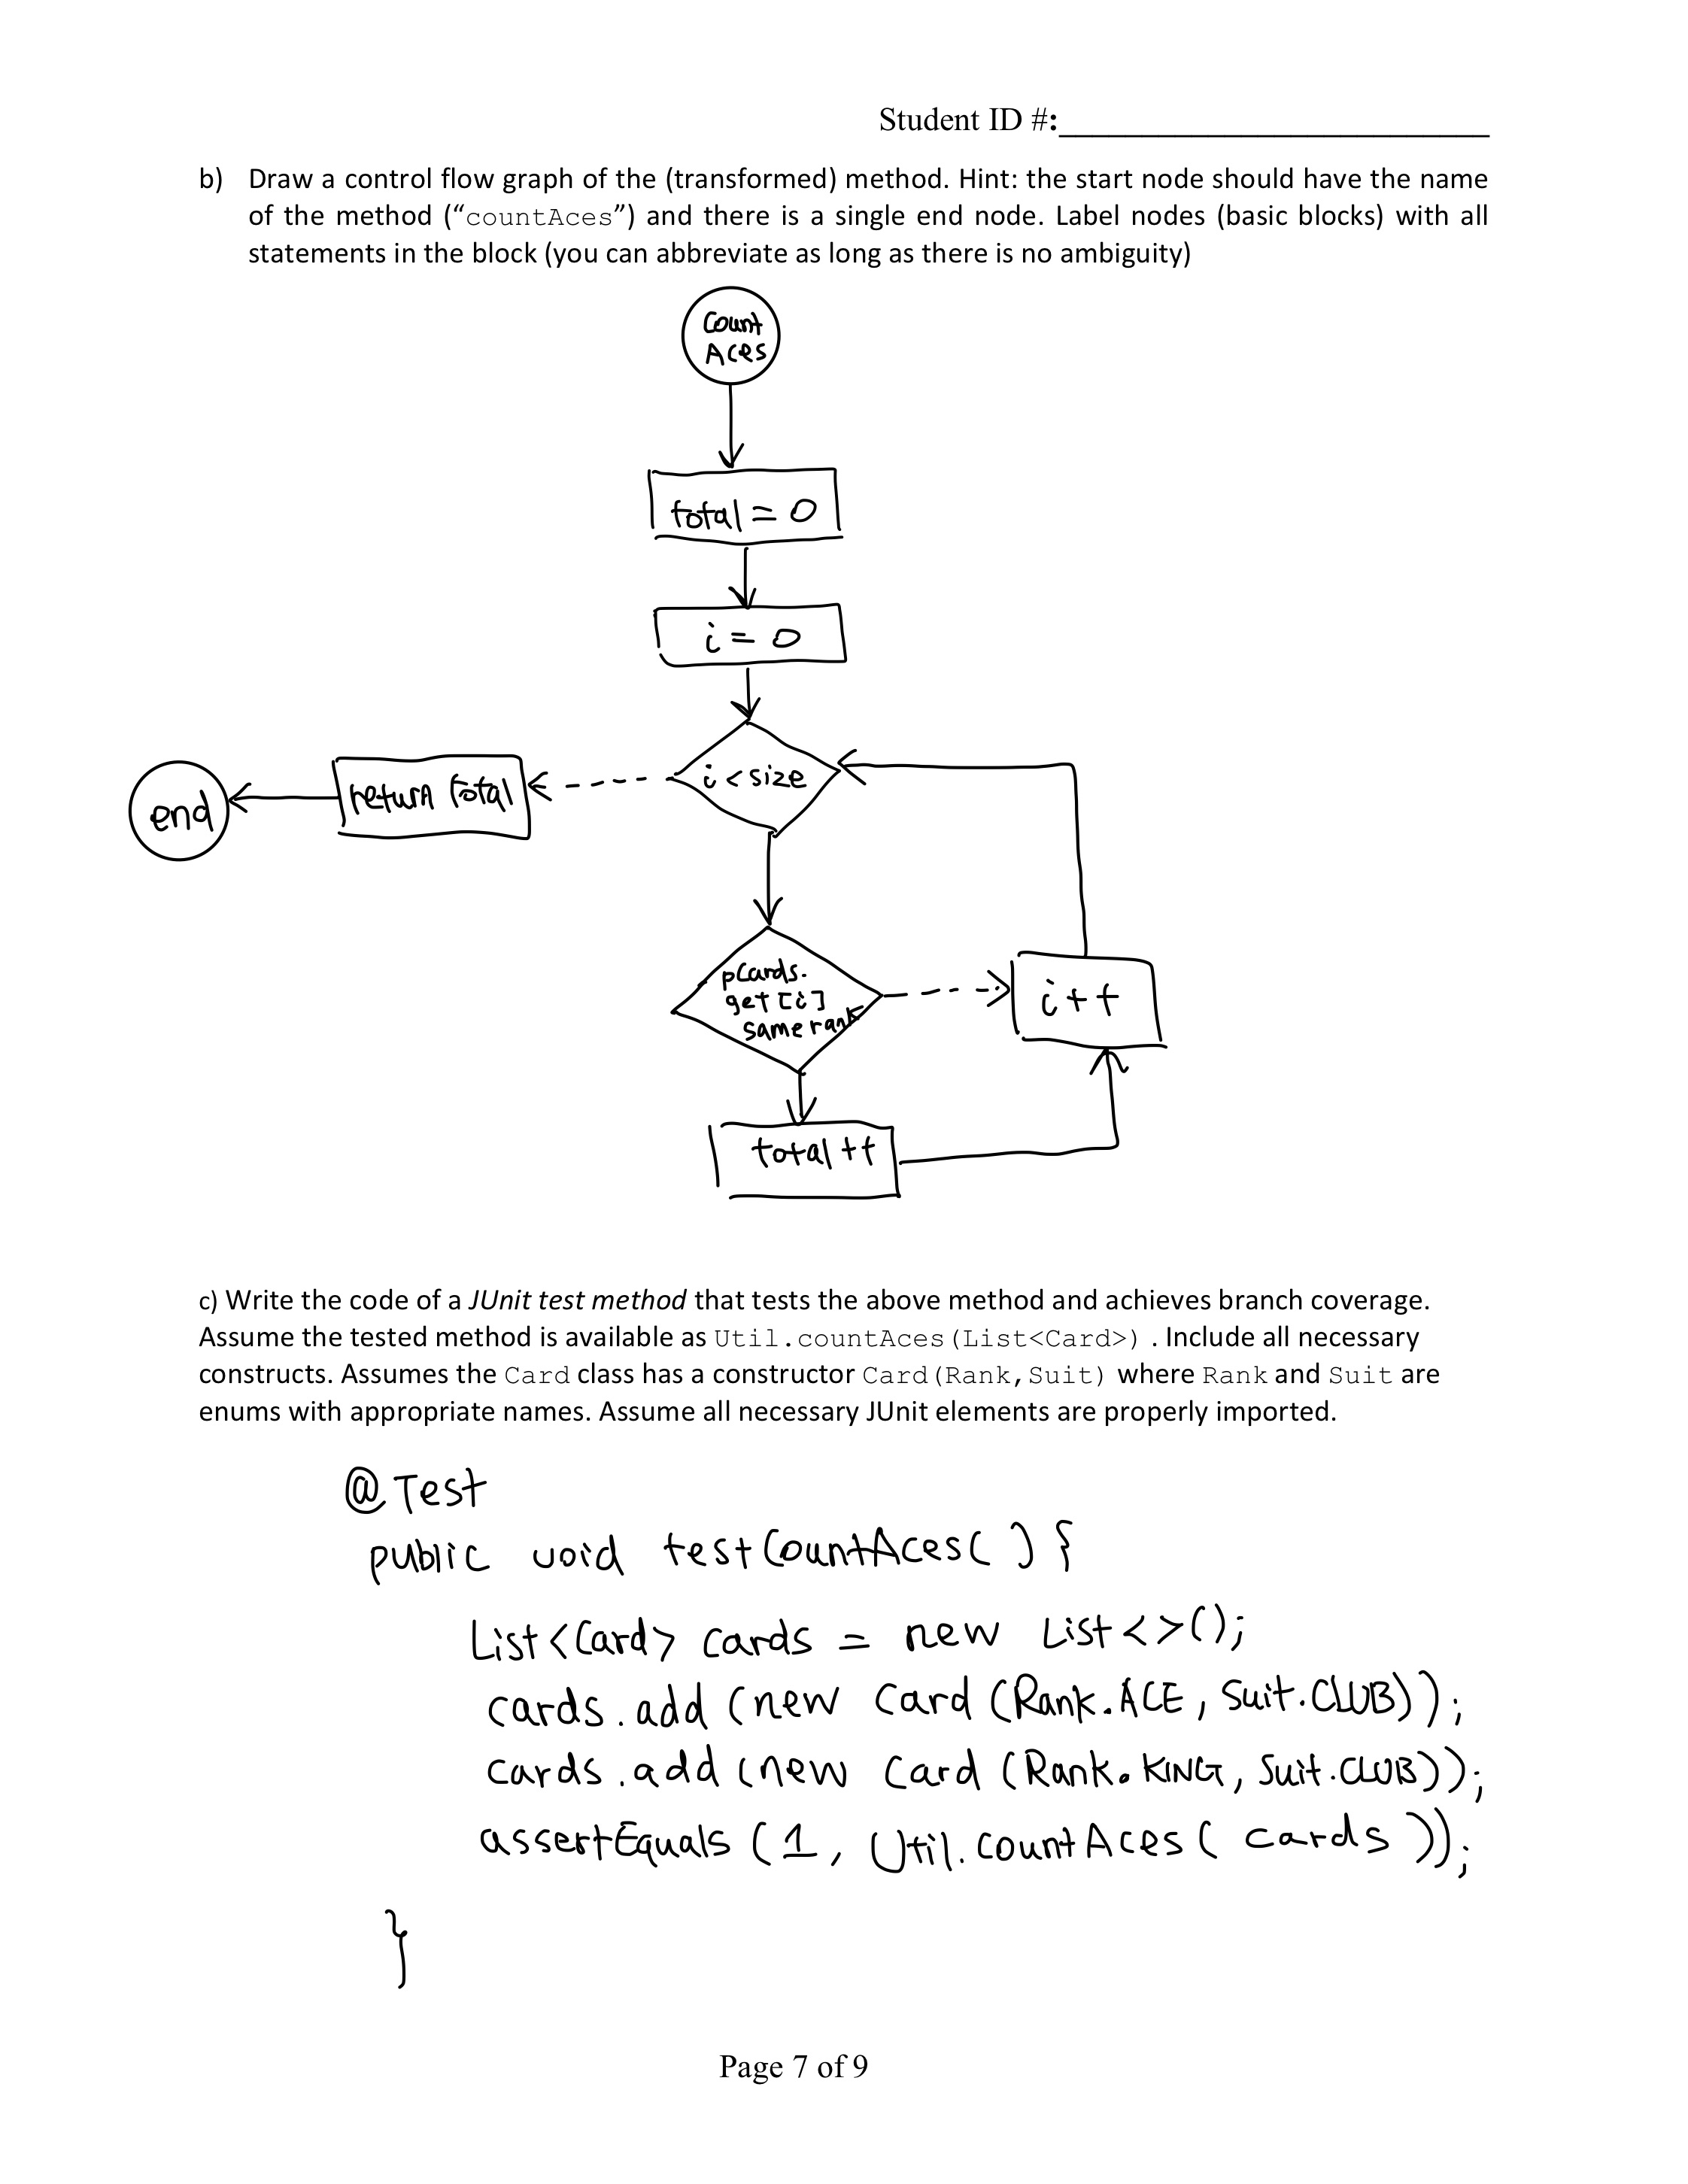 Student ID #:
b) Draw a control flow graph of the (transformed) method. Hint: the start node should have the name
of the method (“countAces”) and there is a single end node. Label nodes (basic blocks) with all
statements in the block (you can abbreviate as long as there is no ambiguity)
Count
Aces
total = 0
i = 0
i < size
return total
end
pCards.
get [i]
same rank
i++
total ++
c) Write the code of a JUnit test method that tests the above method and achieves branch coverage.
Assume the tested method is available as Util.countAces(List<Card>) . Include all necessary
constructs. Assumes the Card class has a constructor Card(Rank,Suit) where Rank and Suit are
enums with appropriate names. Assume all necessary JUnit elements are properly imported.
@Test
public void testCountAces( ) {
List<Card> cards = new List<>();
cards.add (new Card (Rank.ACE, Suit.CLUB));
cards.add (new Card (Rank.KING, Suit.CLUB));
assertEquals (1, Util.countAces( cards ));
}
Page 7 of 9